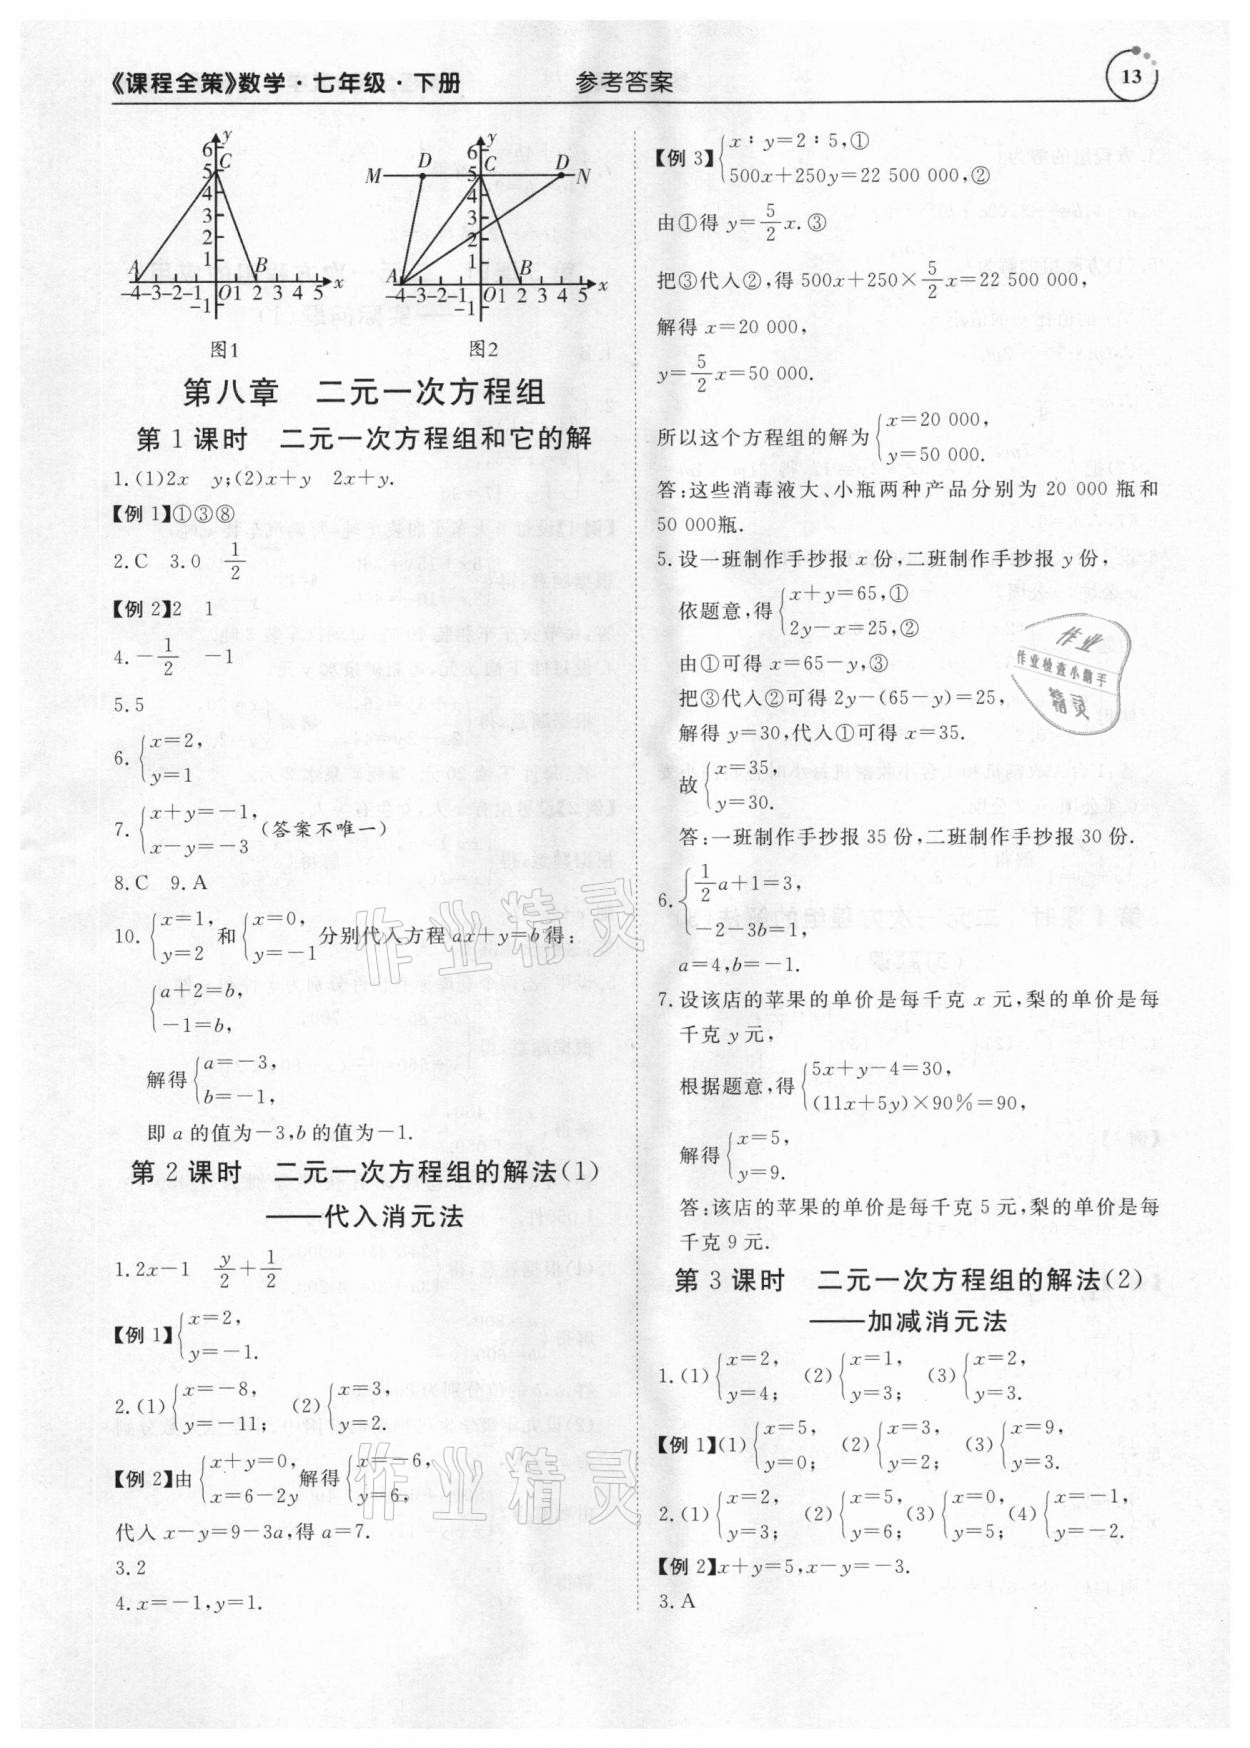 《课程全策》数学·七年级·下册 参考答案 13
图1 图2
第八章 二元一次方程组
第1课时 二元一次方程组和它的解
1.(1)2x y;(2)x+y 2x+y.
【例1】①③⑧
2.C 3.0 1/2
【例2】2 1
4.-1/2 -1
5.5
6.{x=2,
y=1
7.{x+y=-1,
x-y=-3 (答案不唯一)
8.C 9.A
10.{x=1, y=2 和{x=0, y=-1 分别代入方程ax+y=b得:
{a+2=b,
-1=b,
解得{a=-3,
b=-1,
即a的值为-3,b的值为-1.
第2课时 二元一次方程组的解法(1)
——代入消元法
1.2x-1 y/2+1/2
【例1】{x=2,
y=-1.
2.(1){x=-8, y=-11; (2){x=3, y=2.
【例2】由{x+y=0, x=6-2y 解得{x=-6, y=6,
代入x-y=9-3a,得a=7.
3.2
4.x=-1,y=1.
【例3】{x∶y=2∶5,①
500x+250y=22 500 000,②
由①得y=5/2x.③
把③代入②,得500x+250×5/2x=22 500 000,
解得x=20 000,
y=5/2x=50 000.
所以这个方程组的解为{x=20 000,
y=50 000.
答:这些消毒液大、小瓶两种产品分别为20 000瓶和
50 000瓶.
5.设一班制作手抄报x份,二班制作手抄报y份,
依题意,得{x+y=65,①
2y-x=25,②
由①可得x=65-y,③
把③代入②可得2y-(65-y)=25,
解得y=30,代入①可得x=35.
故{x=35,
y=30.
答:一班制作手抄报35份,二班制作手抄报30份.
6.{1/2a+1=3,
-2-3b=1,
a=4,b=-1.
7.设该店的苹果的单价是每千克x元,梨的单价是每
千克y元,
根据题意,得{5x+y-4=30,
(11x+5y)×90%=90,
解得{x=5,
y=9.
答:该店的苹果的单价是每千克5元,梨的单价是每
千克9元.
第3课时 二元一次方程组的解法(2)
——加减消元法
1.(1){x=2, y=4; (2){x=1, y=3; (3){x=2, y=3.
【例1】(1){x=5, y=0; (2){x=3, y=2; (3){x=9, y=3.
2.(1){x=2, y=3; (2){x=5, y=6; (3){x=0, y=5; (4){x=-1, y=-2.
【例2】x+y=5,x-y=-3.
3.A
作业
作业检查小帮手
精灵
作业精灵
作业精灵